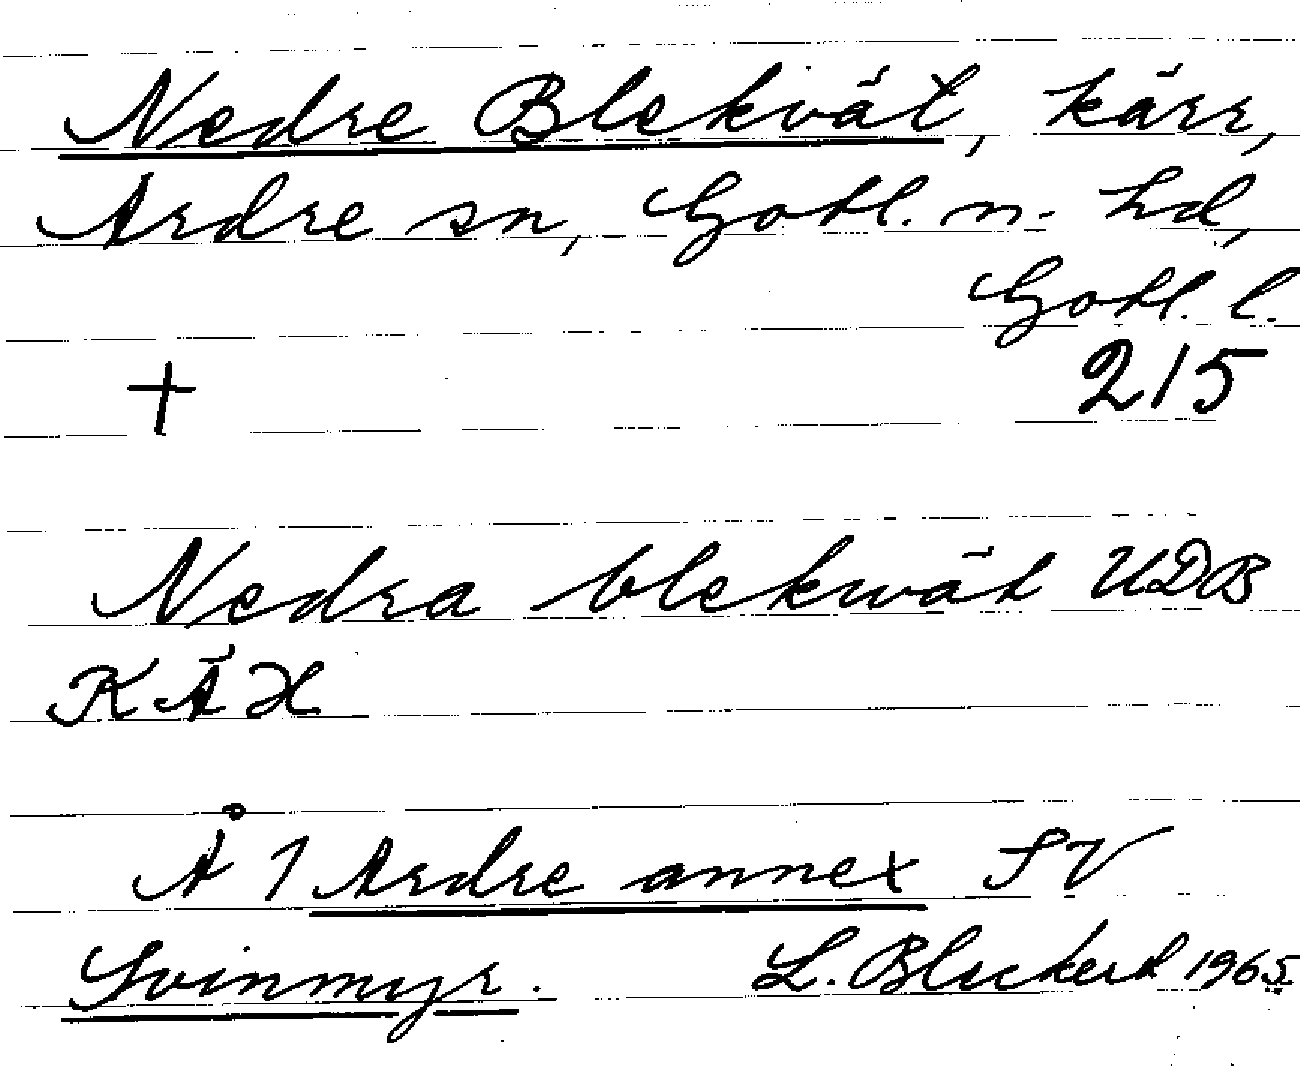 Nedre Blekvät, kärr,
Ardre sn, Gotl. n. hd,
Gotl. l.
+ 215
Nedra blekwät UDB
KÄH
Å 1 Ardre annex SV
Svinmyr. L. Bleckert 1965